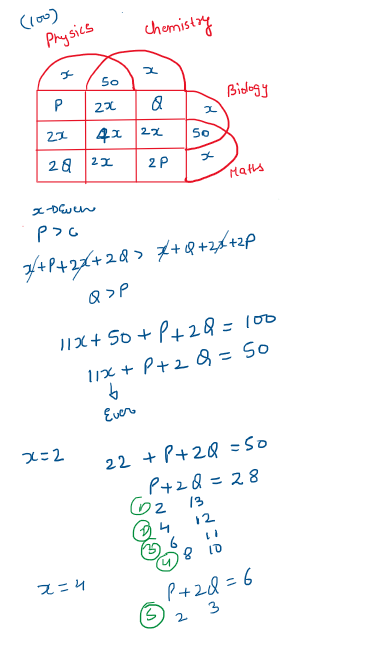 (100)
Physics
Chemistry
x
50
x
Biology
P
2x
Q
x
2x
4x
2x
50
2Q
2x
2P
x
Maths
x→Even
P>Q
x+P+2x+2Q > x+Q+2x+2P
Q>P
11x + 50 + P+2Q = 100
11x + P+2Q = 50
↓
Even
x=2
22 + P+2Q = 50
P+2Q = 28
① 2 13
② 4 12
③ 6 11
④ 8 10
x=4
P+2Q = 6
⑤ 2 3